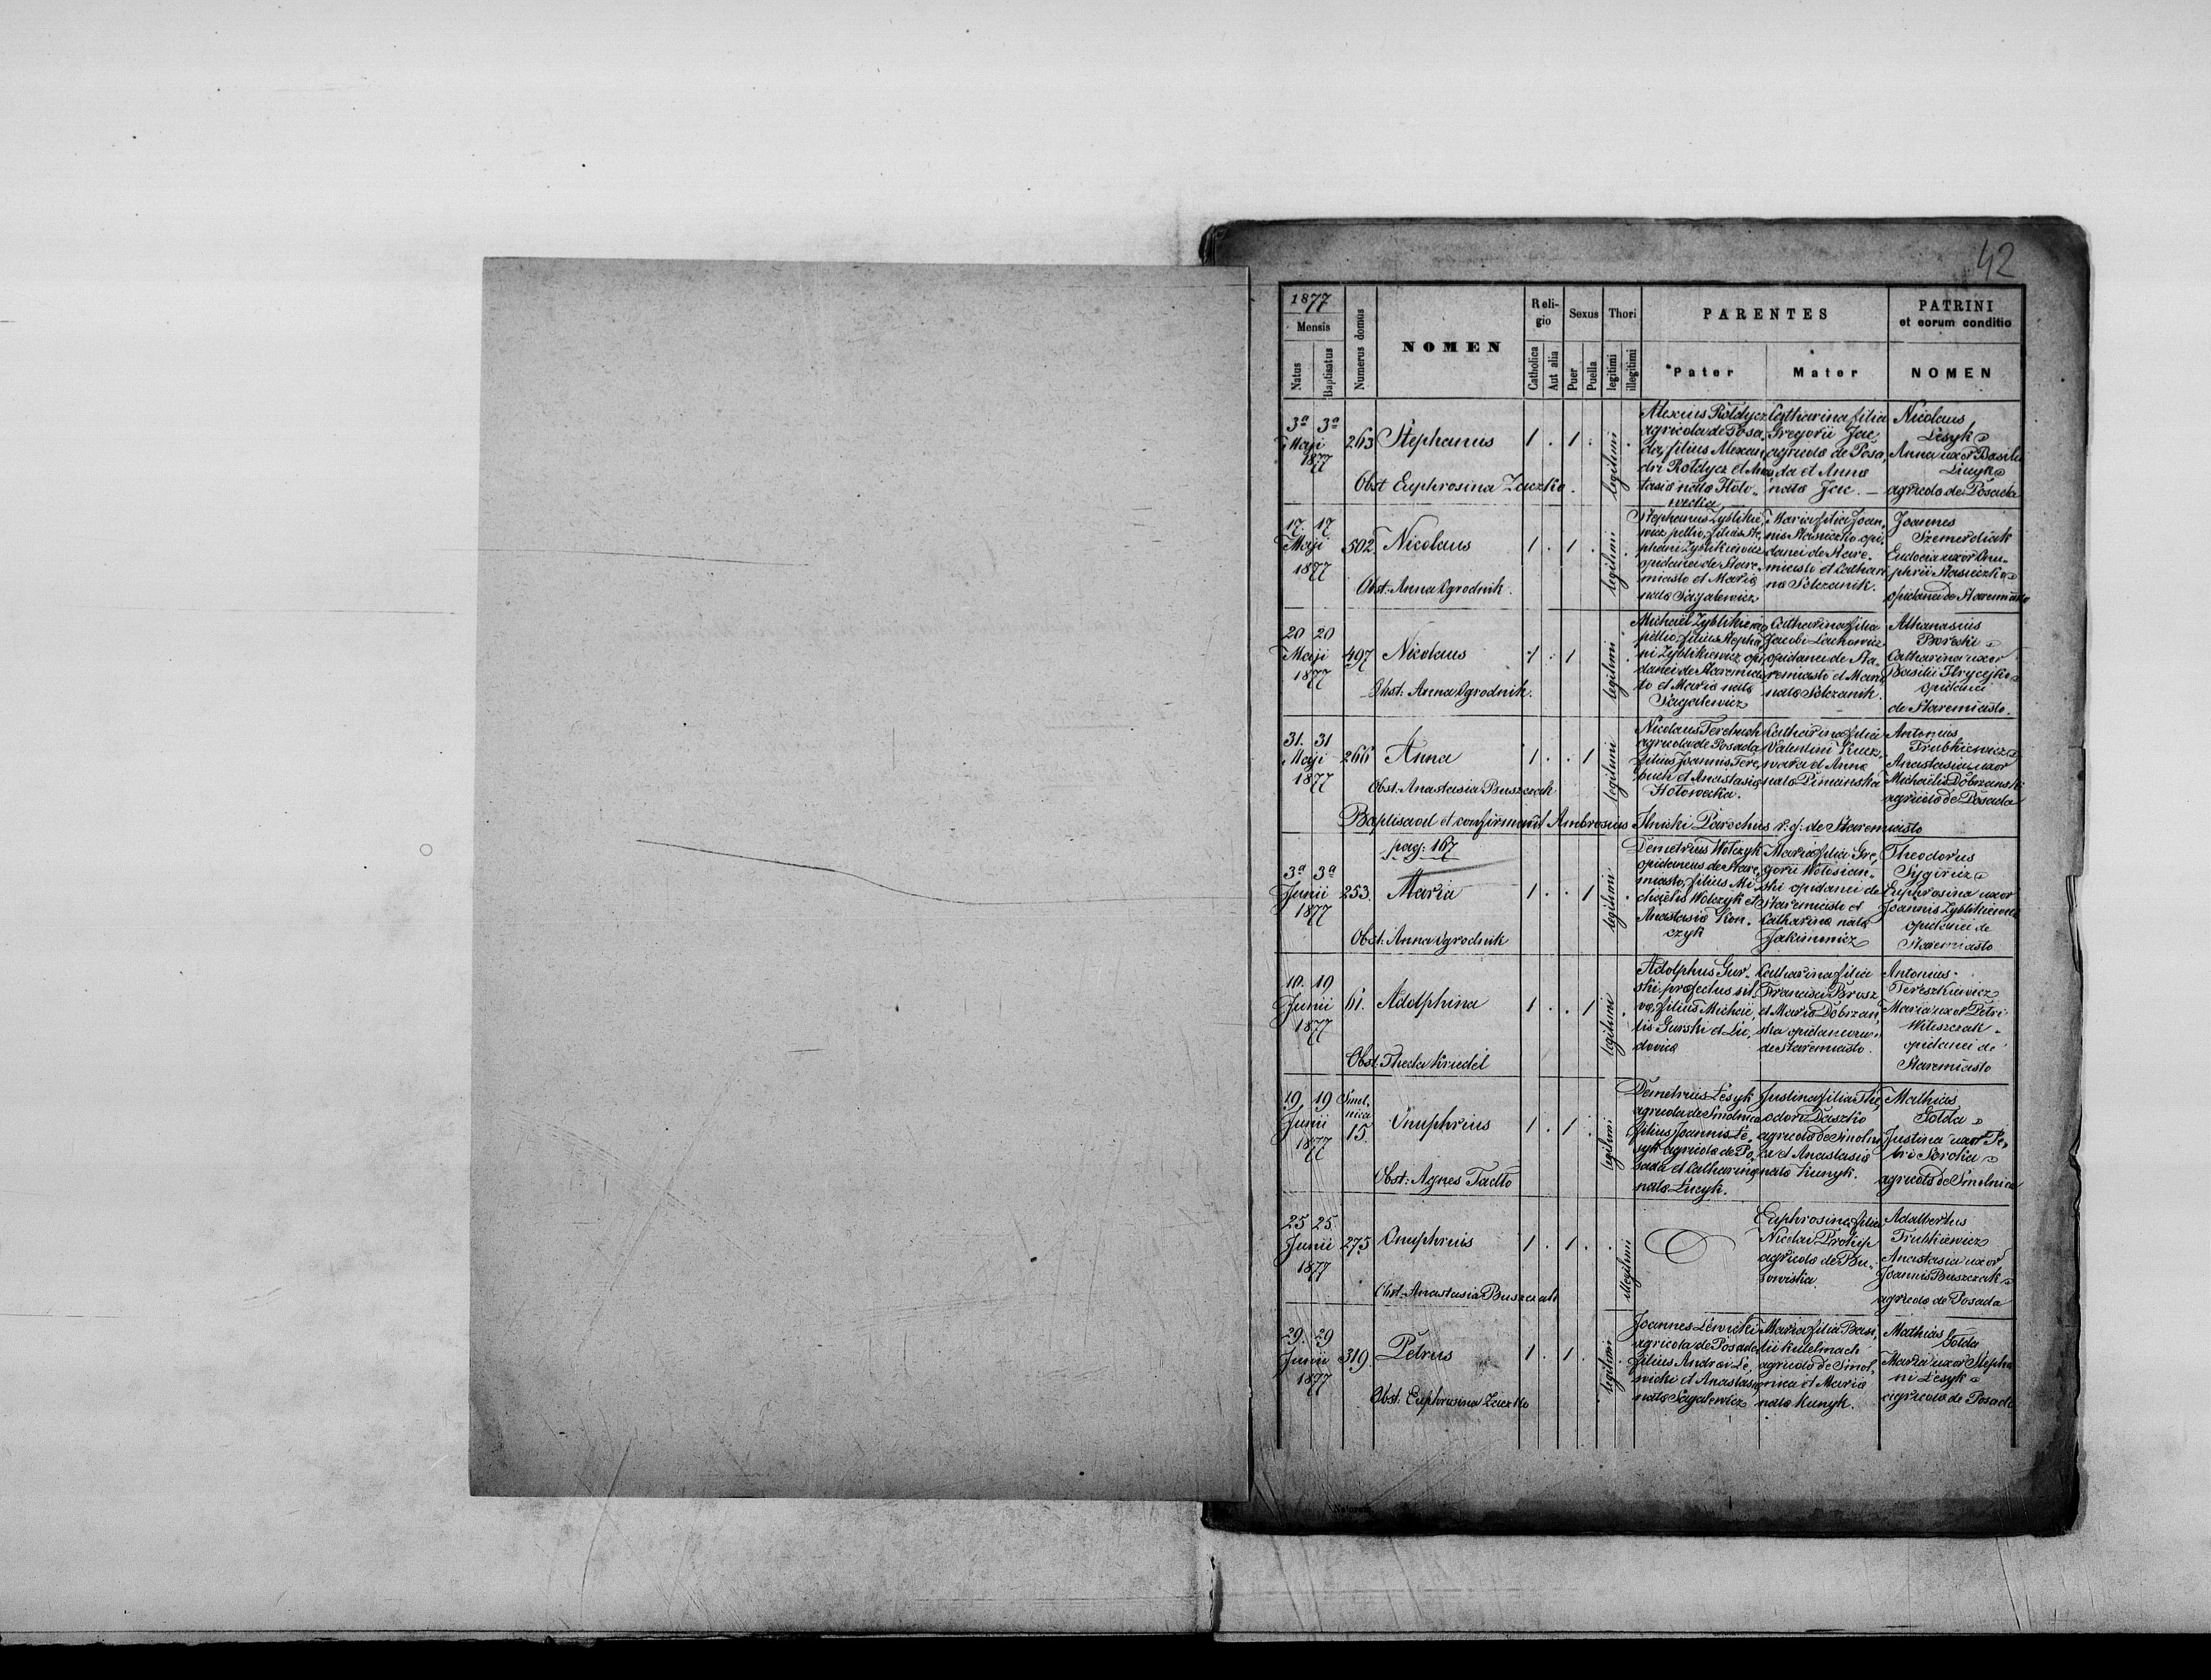 42
1877
Mensis
Natus
Baptisatus
Numerus domus
NOMEN
Reli-
gio
Catholica
Aut alia
Sexus
Puer
Puella
Thori
legitimi
illegitimi
PARENTES
Pater
Mater
PATRINI
et eorum conditio
NOMEN
3a 3a
Maji
1877
263
Stephanus
1 . 1 .
legitimi
Obst Euphrosina Zaczko.
Alexius Rołdycz
agricola de Posa
da, filius Alexan
dri Rołdycz et Anas
tasia nata Hoło-
wecka
Catharina filia
Gregorii Jac
agricola de Posa,
da et Anna
nata Jac. —
Nicolaus
Lesyk
Anna uxor Basilii
agricola de Posada
17. 17
Maji
1877
502.
Nicolaus
1 . 1 .
legitimi
Obst: Anna Ogrodnik.
Stephanus Zyblikie
wicz pellio, filius Ste,
phani Zyblikiewicz
opidanei de Stare-
miasto et Maria
nata Sagalewicz
Maria filia Joan,
nis Stasiczko opi,
danei de Stare-
miasto et Cathari
na Solczanik.
Joannes
Szemerdiak
Eudocia uxor Onu-
phrii Stasiczko
opidanei de Staremiasto
20 20
Maji
1877
497
Nicolaus
1 . 1
legitimi
Obst: Anna Ogrodnik.
Michael Zyblikiewicz
pellio, filius Stepha,
ni Zyblikiewicz opi
danei de Staremias
to et Maria nata
Sagalewicz
Catharina filia
Jacobi Lachowicz
opidanei de Sta-
remiasto et Maria
nata Solczanik.
Athanasius
Catharina uxor
Basilii Hrycyk
opidanei
de Staremiasto.
31. 31
Maji
1877
266
Anna
1 . . 1
legitimi
Obst: Anastasia Buszczak
Nicolaus Terebuch
agricola de Posada
filius Joannis Tere,
buch et Anastasia
Hołowecka.
Catharina filia
Valentini Kucz,
wara et Anna
nata Pimanska
Antonius
Trubkiewicz
Anastasia uxor
Michaelis Dobrzanski
agricola de Posada
Baptisavit et confirmavit Ambrosius Ilnicki Parochus r. g. de Staremiasto
pag: 167
3a 3a
Junii
1877
253.
Maria
1 . . 1
legitimi
Obst: Anna Ogrodnik
Demetrius Wolczyk
opidaneus de Stare,
miasto, filius Mi
chaelis Wolczyk et
Anastasia Kon-
czyk
Maria filia Gre,
gorii Wołosian-
ski opidanei de
Staremiasto et
Catharina nata
Jakimowicz
Theodorus
Euphrosina uxor
Joannis Zyblikiewicz
opidanei de
Staremiasto
10. 19
Junii
1877
61.
Adolphina
1 . . 1
legitimi
Obst: Thecla Kriedel
Adolphus Gur-
ski profectus sil
va, filius Michae,
lis Gurski et Lu,
dovica
Catharina filia
Francisci Brosz
et Maria Dobrzan,
ska opidaneorum
de Staremiasto.
Antonius
Tereszkiewicz
Maria uxor Petri
Witeszczak
opidanei de
Staremiasto
19. 19
Junii
1877
Smol,
nica
15.
Onuphrius
1 . 1 .
legitimi
Obst: Agnes Tadło
Demetrius Lesyk
agricola de Smolnica
filius Joannis Le,
syk agricola de Po,
sada et Catharina
nata Łucyk.
Justina filia The,
odori Daszko
agricola de Smolni,
ca et Anastasia
nata Kunyk.
Mathias
Gołda
Justina uxor Pe,
tri Soroka
agricola de Smolnica
25 25.
Junii
1877
275
Onuphrius
1 . 1 .
illegitimi
Obst: Anastasia Buszczak
Euphrosina filia
Nicolai Prokip
agricola de Bu-
Adalbertus
Trubkiewicz
Anastasia uxor
Joannis Buszczak
agricola de Posada
29. 29
Junii
1877
319.
Petrus
1 . 1 .
legitimi
Obst: Euphrosina Zaczko
Joannes Lewicki
agricola de Posada
filius Andrei Le,
wicki et Anastasia
nata Sagalewicz
Maria filia Basi,
lii Kutelmach
agricola de Smol,
nica et Maria
nata Kunyk.
Mathias
Gołda
Maria uxor Stepha
ni Lesyk
agricola de Posada